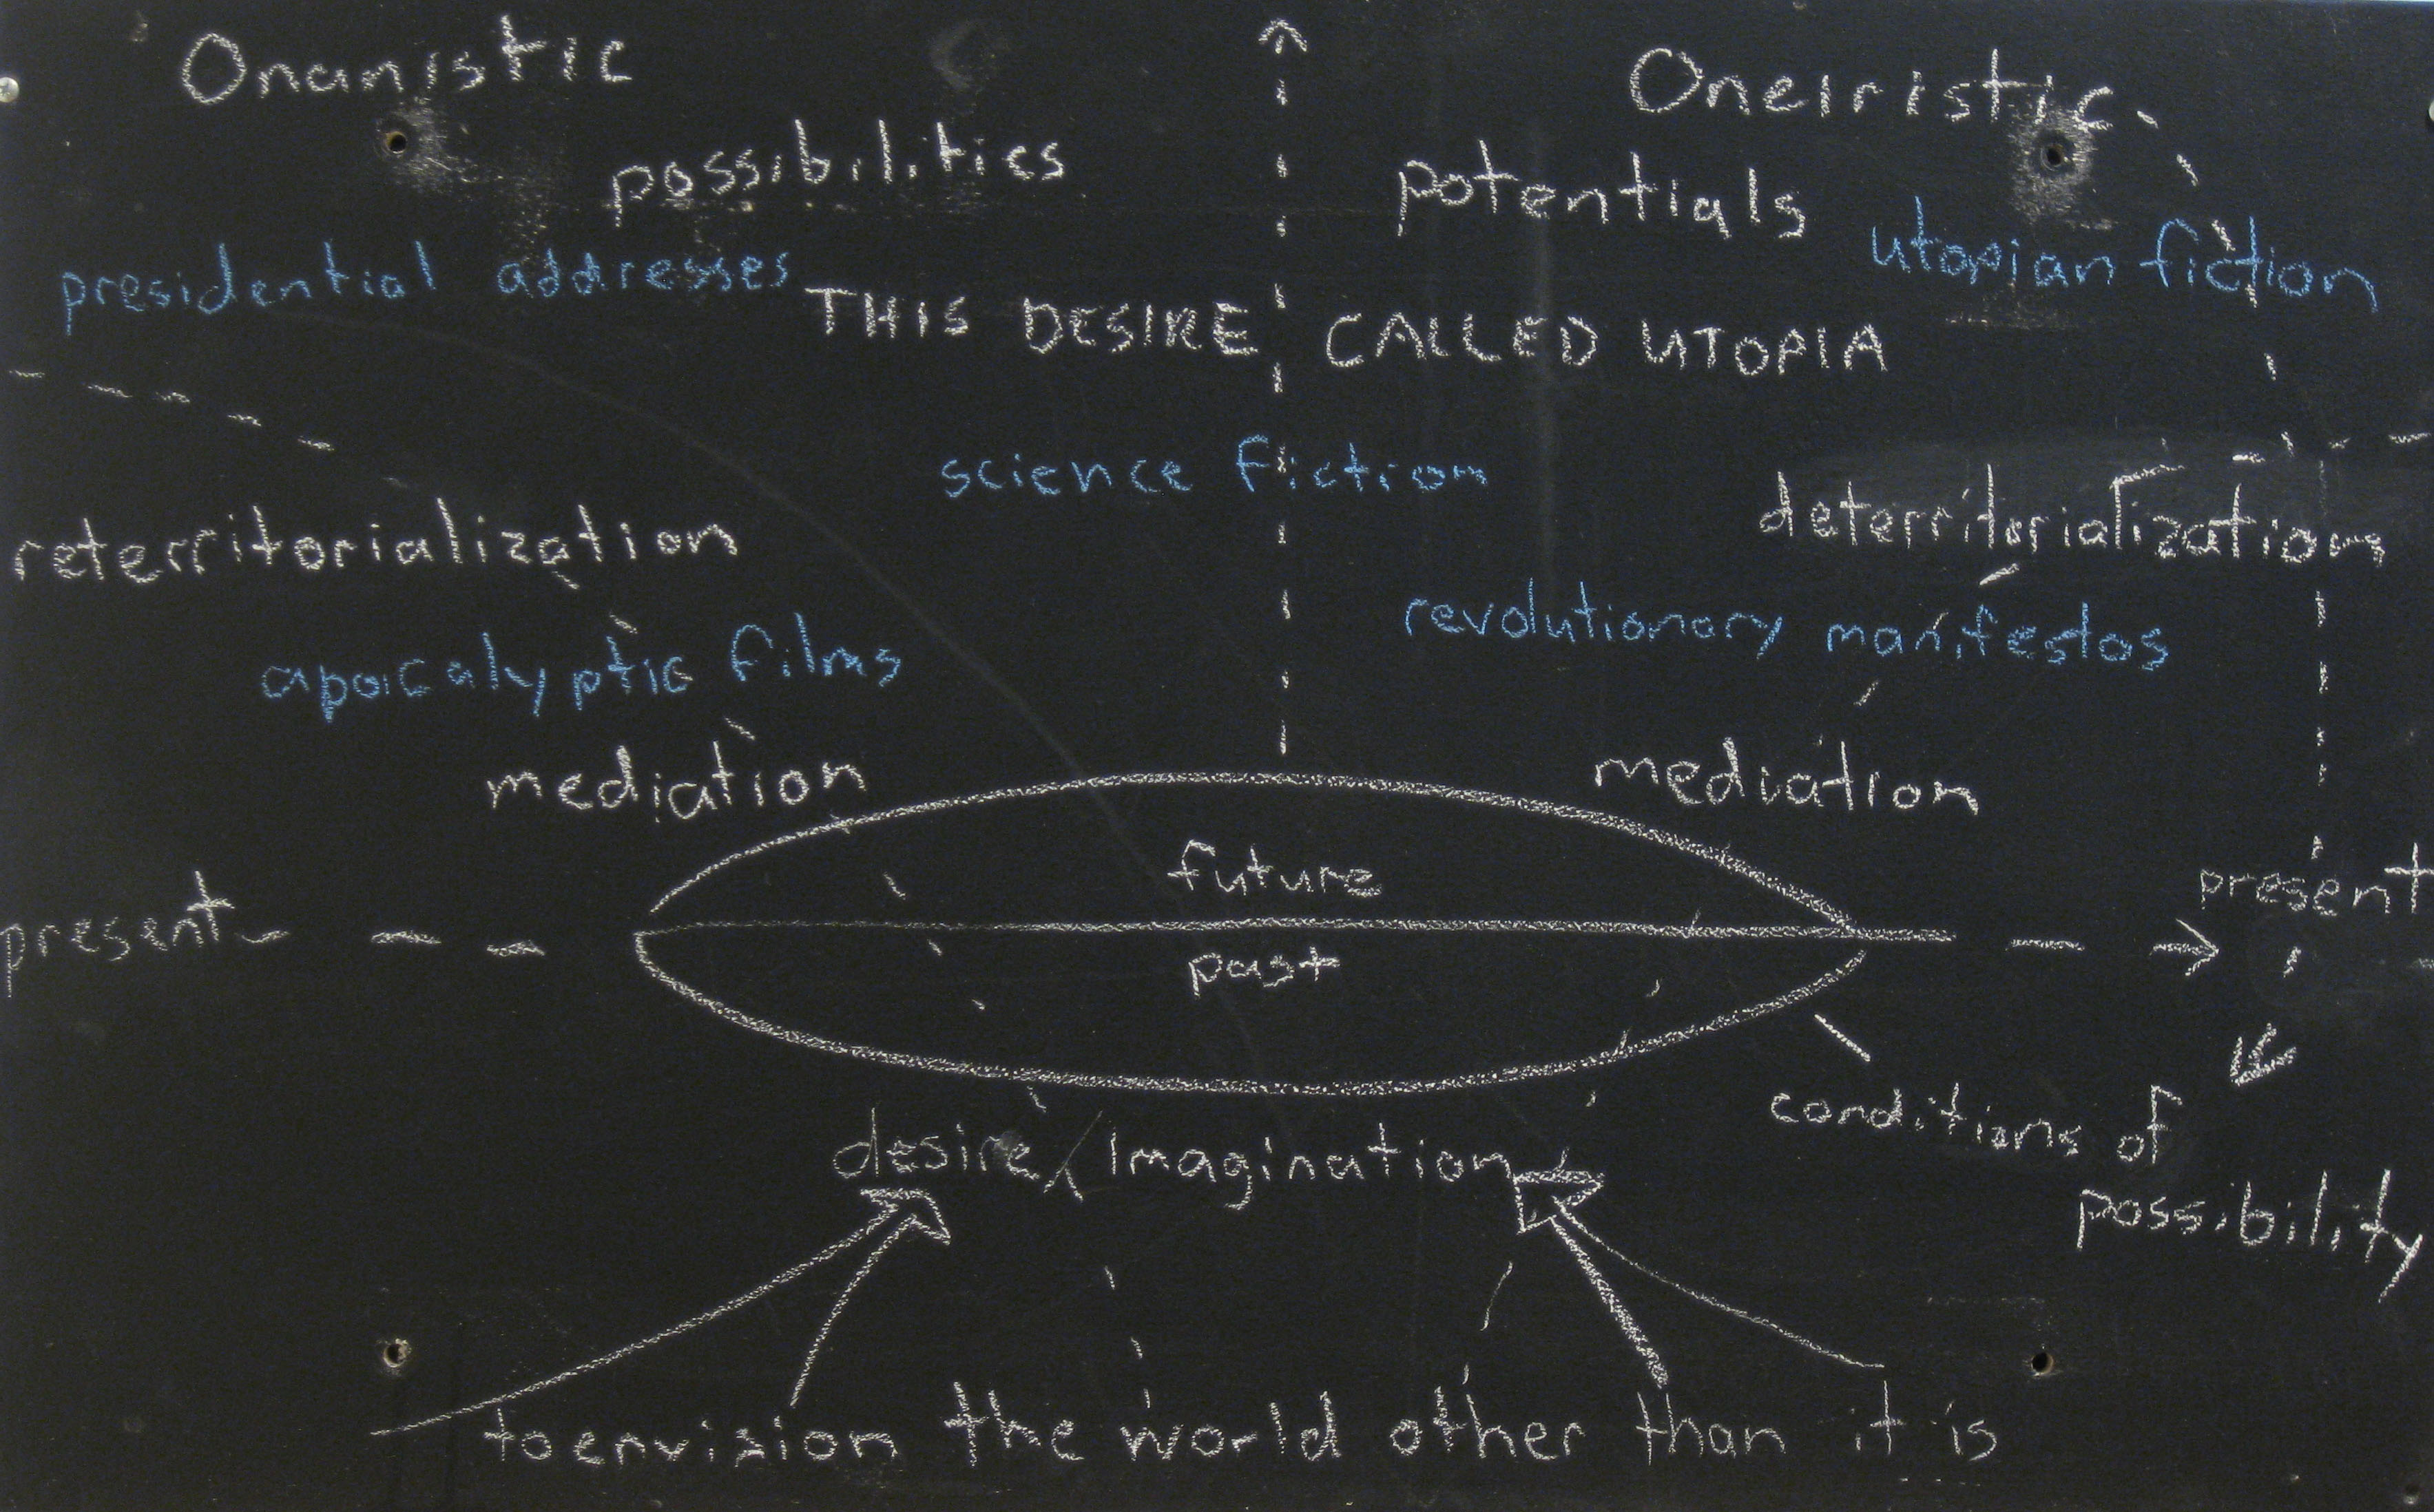 Onanistic
Oneiristic
possibilities
potentials
presidential addresses
utopian fiction
THIS DESIRE CALLED UTOPIA
science fiction
reterritorialization
deterritorialization
apocalyptic films
revolutionary manifestos
mediation
mediation
future
present
present
past
desire/imagination
conditions of
possibility
to envision the world other than it is